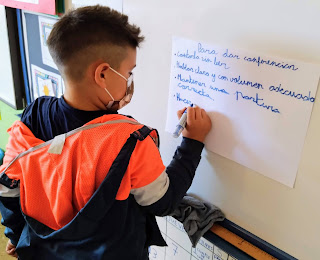 Para dar conferencias
• Contarlo bien
• Hablar claro y con volumen adecuado
• Mantener una postura
correcta
• Hacer